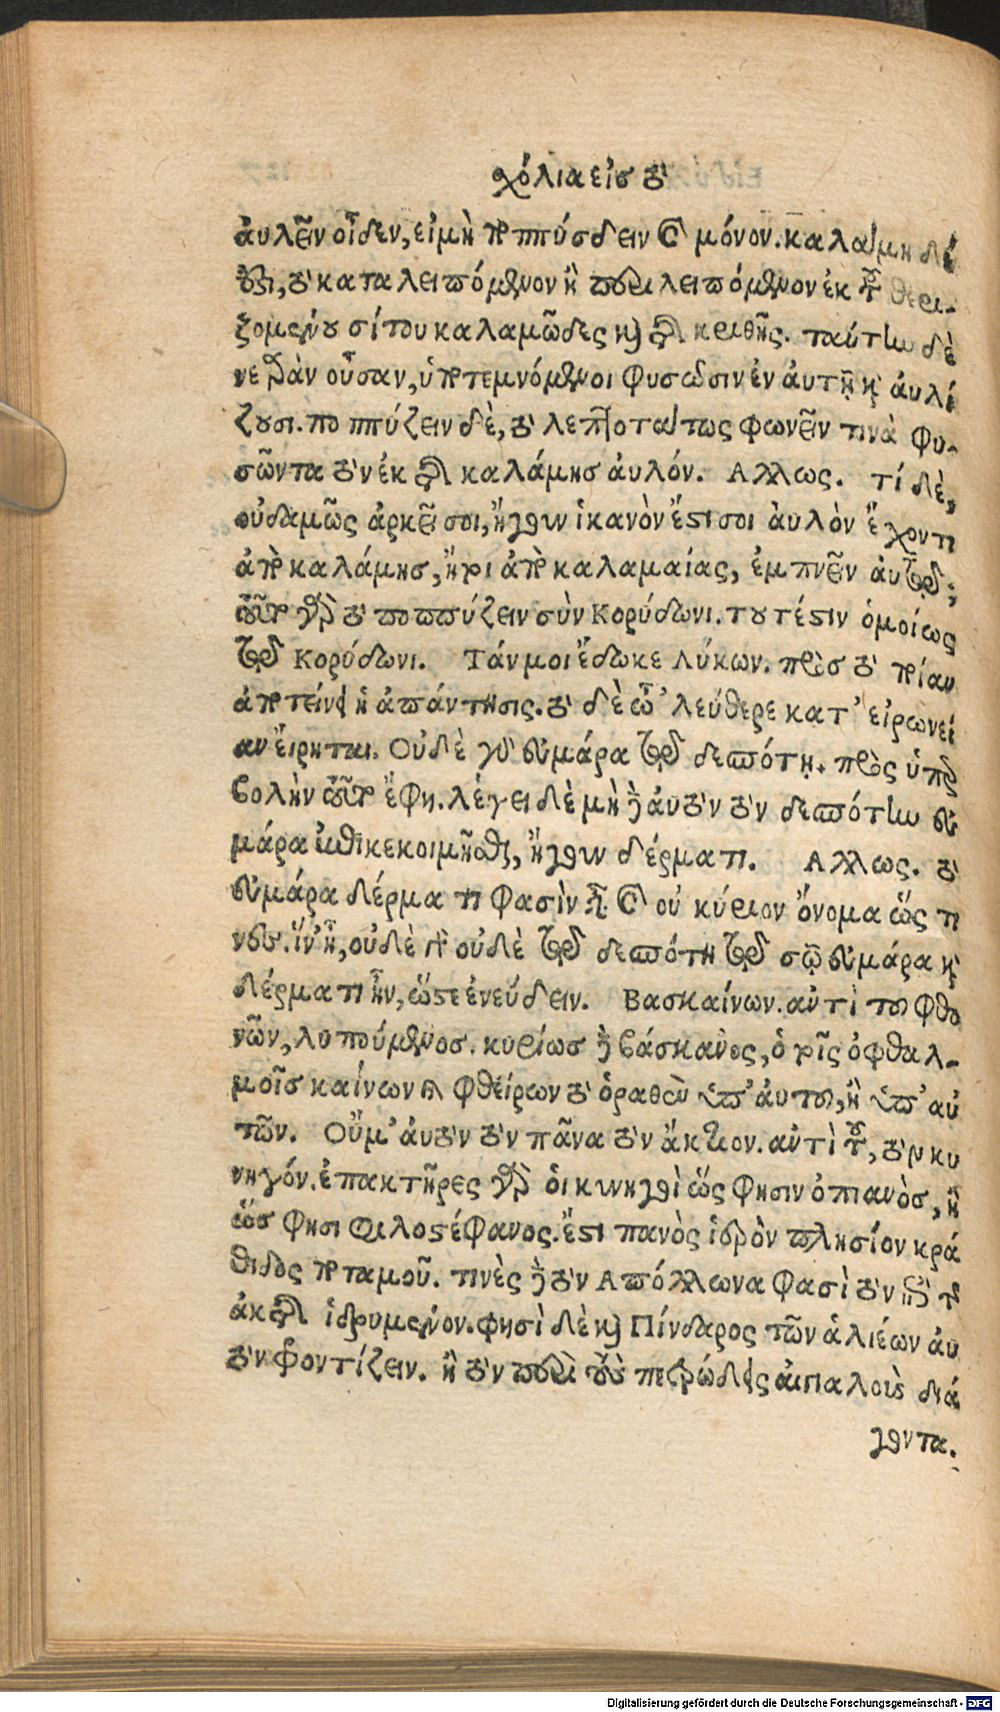 σχόλια εἰσ τὸ
ἀυλεῖν οἶδεν, εἰμὴ ποππύσδειν καὶ μόνον. καλάμη δέ
ἐστι, τὸ καταλειπόμενον ἢ περιλειπόμενον ἐκ τοῦ θερι-
ζομένου σίτου καλαμῶδες καὶ τῆς κριθῆς. ταύτην δὲ
νεαρὰν οὖσαν, ὑποτεμνόμενοι φυσῶσιν ἐν ἀυτῇ καὶ ἀυλί
ζουσι. ποππύζειν δὲ, τὸ λεπτοτάτως φωνεῖν τινὰ φυ-
σῶντα τὸν ἐκ τῆς καλάμησ ἀυλόν. Αλλως. τί δὲ,
οὐδαμῶς ἀρκεῖ σοι, ἤγουν ἱκανὸν ἔστι σοι ἀυλὸν ἔχοντι
ἀπὸ καλάμησ, ἤτοι ἀπὸ καλαμαίας, ἐμπνεῖν ἀυτῷ;
τοῦτο γὰρ τὸ ποππύζειν σὺν Κορύδωνι. τουτέστιν ὁμοίως
τῷ Κορύδωνι. Τάν μοι ἔδωκε Λύκων. πρὸσ τὸ ποίαν
ἀποτείνει ἡ ἀπάντησις. τὸ δὲ ὦ ’λεύθερε κατ’ εἰρωνεί
αν εἴρηται. Οὐδὲ γὰρ Εὐμάρα τῷ δεσπότῃ. πρὸς ὑπερ
βολὴν τοῦτο ἔφη. λέγει δὲ μὴ δὲ ἀυτὸν τὸν δεσπότην Εὐ
μάρα ἐπικεκοιμῆσθαι, ἤγουν δέρματι. Αλλως. τὸ
Εὐμάρα δέρμα τι φασὶν εἶναι καὶ οὐ κύριον ὄνομα ὥς τι
νες. ἵν’ ᾖ, οὐδὲ γὰρ οὐδὲ τῷ δεσπότῃ τῷ σῷ Εὐμάρα καὶ
δέρμα τι ἦν, ὥστε ἐνεύδειν. Βασκαίνων. αὐτὶ τοῦ φθο
νῶν, λυπούμενοσ. κυρίωσ δὲ βάσκανος, ὁ τοῖς ὀφθαλ-
μοῖσ καίνων καὶ φθείρων τὸ ὁραθὲν ὑπ’ ἀυτοῦ, ἢ ὑπ’ αὐ
τῶν. Οὔμ’ ἀυτὸν τὸν πᾶνα τὸν ἄκτιον. αὐτὶ τοῦ, τὸν κυ
νηγόν. ἐπακτῆρες γὰρ ὁι κυνηγοὶ ὥς φησιν ὀπιανὸσ, ἢ
ὥσ φησι Φιλοστέφανος. ἔστι πανὸς ἱερὸν πλησίον κρά
θιδος ποταμοῦ. τινὲς δὲ τὸν Απόλλωνα φασὶ τὸν ἐπὶ τῆς
ἀκτῆς ἱδρυμένον. φησὶ δὲ καὶ Πίνδαρος τῶν ἁλιέων ἀυ
τὸν φροντίζειν. ἢ τὸν περὶ τοὺς πετρώδεις ἀιγιαλοὺς διά
γοντα.
Digitalisierung gefördert durch die Deutsche Forschungsgemeinschaft - DFG